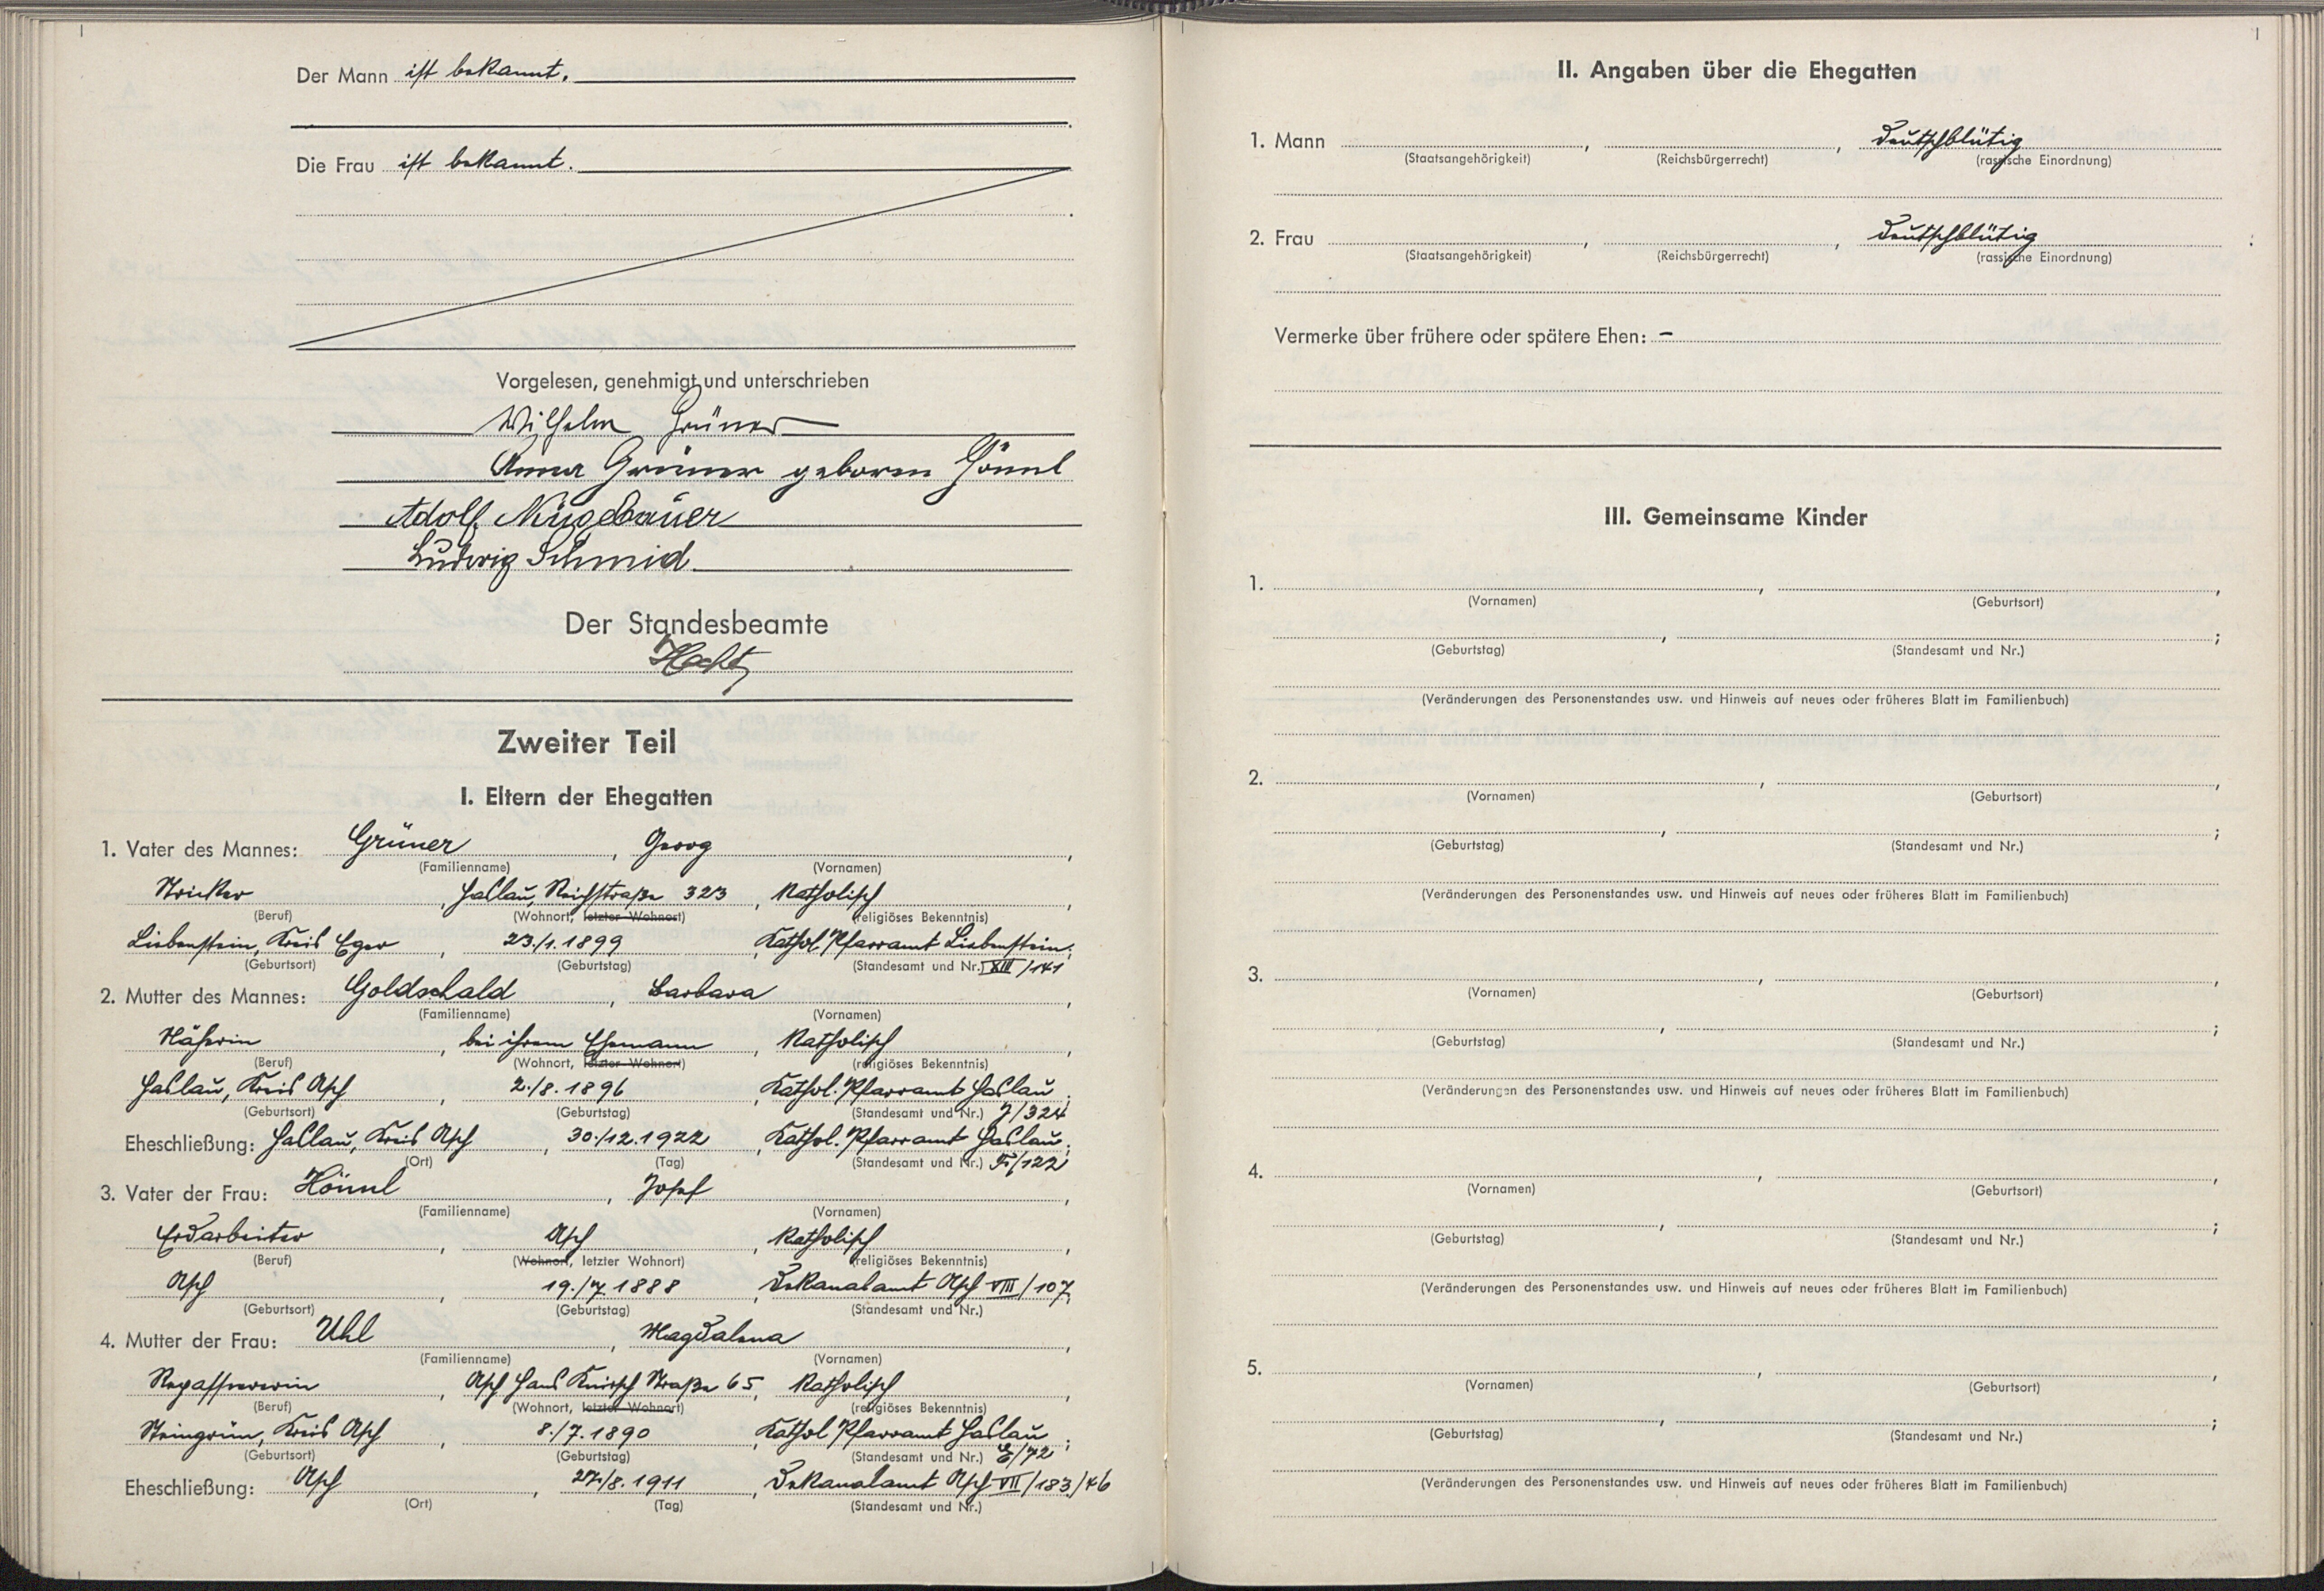 Der Mann ist bekannt.
Die Frau ist bekannt.
Vorgelesen, genehmigt und unterschrieben
Wilhelm Grüner
Anna Grüner geboren Hönnl
Adolf
Ludwig Schmid
Der Standesbeamte
Zweiter Teil
I. Eltern der Ehegatten
1. Vater des Mannes: Grüner, Georg,
(Familienname) (Vornamen)
Stricker, Haslau, Reichstraße 323, katholisch,
(Beruf) (Wohnort, letzter Wohnort) (religiöses Bekenntnis)
Liebenstein, Kreis Eger, 23./1.1899, Kathol. Pfarramt Liebenstein;
(Geburtsort) (Geburtstag) (Standesamt und Nr.) XIII/141
2. Mutter des Mannes: Goldschald, Barbara,
(Familienname) (Vornamen)
Näherin, bei ihrem Ehemann, katholisch,
(Beruf) (Wohnort, letzter Wohnort) (religiöses Bekenntnis)
Haslau, Kreis Asch, 2./8.1896, Kathol. Pfarramt Haslau;
(Geburtsort) (Geburtstag) (Standesamt und Nr.) J/324
Eheschließung: Haslau, Kreis Asch, 30./12.1922, Kathol. Pfarramt Haslau;
(Ort) (Tag) (Standesamt und Nr.)
3. Vater der Frau: Hönnl, Josef,
(Familienname) (Vornamen)
Erdarbeiter, Asch, katholisch,
(Beruf) (Wohnort, letzter Wohnort) (religiöses Bekenntnis)
Asch, 19./7.1888, Dekanalamt Asch VIII/107;
(Geburtsort) (Geburtstag) (Standesamt und Nr.)
4. Mutter der Frau: Uhl, Magdalena,
(Familienname) (Vornamen)
Repassiererin, Asch Hans Knirsch Straße 65, katholisch,
(Beruf) (Wohnort, letzter Wohnort) (religiöses Bekenntnis)
Steingrün, Kreis Asch, 8./7.1890, Kathol Pfarramt Haslau;
(Geburtsort) (Geburtstag) (Standesamt und Nr.)
Eheschließung: Asch, 27./8.1911, Dekanalamt Asch VII/183/46
(Ort) (Tag) (Standesamt und Nr.)
II. Angaben über die Ehegatten
1. Mann , , Deutschblütig
(Staatsangehörigkeit) (Reichsbürgerrecht) (rassische Einordnung)
2. Frau , , Deutschblütig
(Staatsangehörigkeit) (Reichsbürgerrecht) (rassische Einordnung)
Vermerke über frühere oder spätere Ehen: -
III. Gemeinsame Kinder
1. , ,
(Vornamen) (Geburtsort)
, ;
(Geburtstag) (Standesamt und Nr.)
(Veränderungen des Personenstandes usw. und Hinweis auf neues oder früheres Blatt im Familienbuch)
2. , ,
(Vornamen) (Geburtsort)
, ;
(Geburtstag) (Standesamt und Nr.)
(Veränderungen des Personenstandes usw. und Hinweis auf neues oder früheres Blatt im Familienbuch)
3. , ,
(Vornamen) (Geburtsort)
, ;
(Geburtstag) (Standesamt und Nr.)
(Veränderungen des Personenstandes usw. und Hinweis auf neues oder früheres Blatt im Familienbuch)
4. , ,
(Vornamen) (Geburtsort)
, ;
(Geburtstag) (Standesamt und Nr.)
(Veränderungen des Personenstandes usw. und Hinweis auf neues oder früheres Blatt im Familienbuch)
5. , ,
(Vornamen) (Geburtsort)
, ;
(Geburtstag) (Standesamt und Nr.)
(Veränderungen des Personenstandes usw. und Hinweis auf neues oder früheres Blatt im Familienbuch)